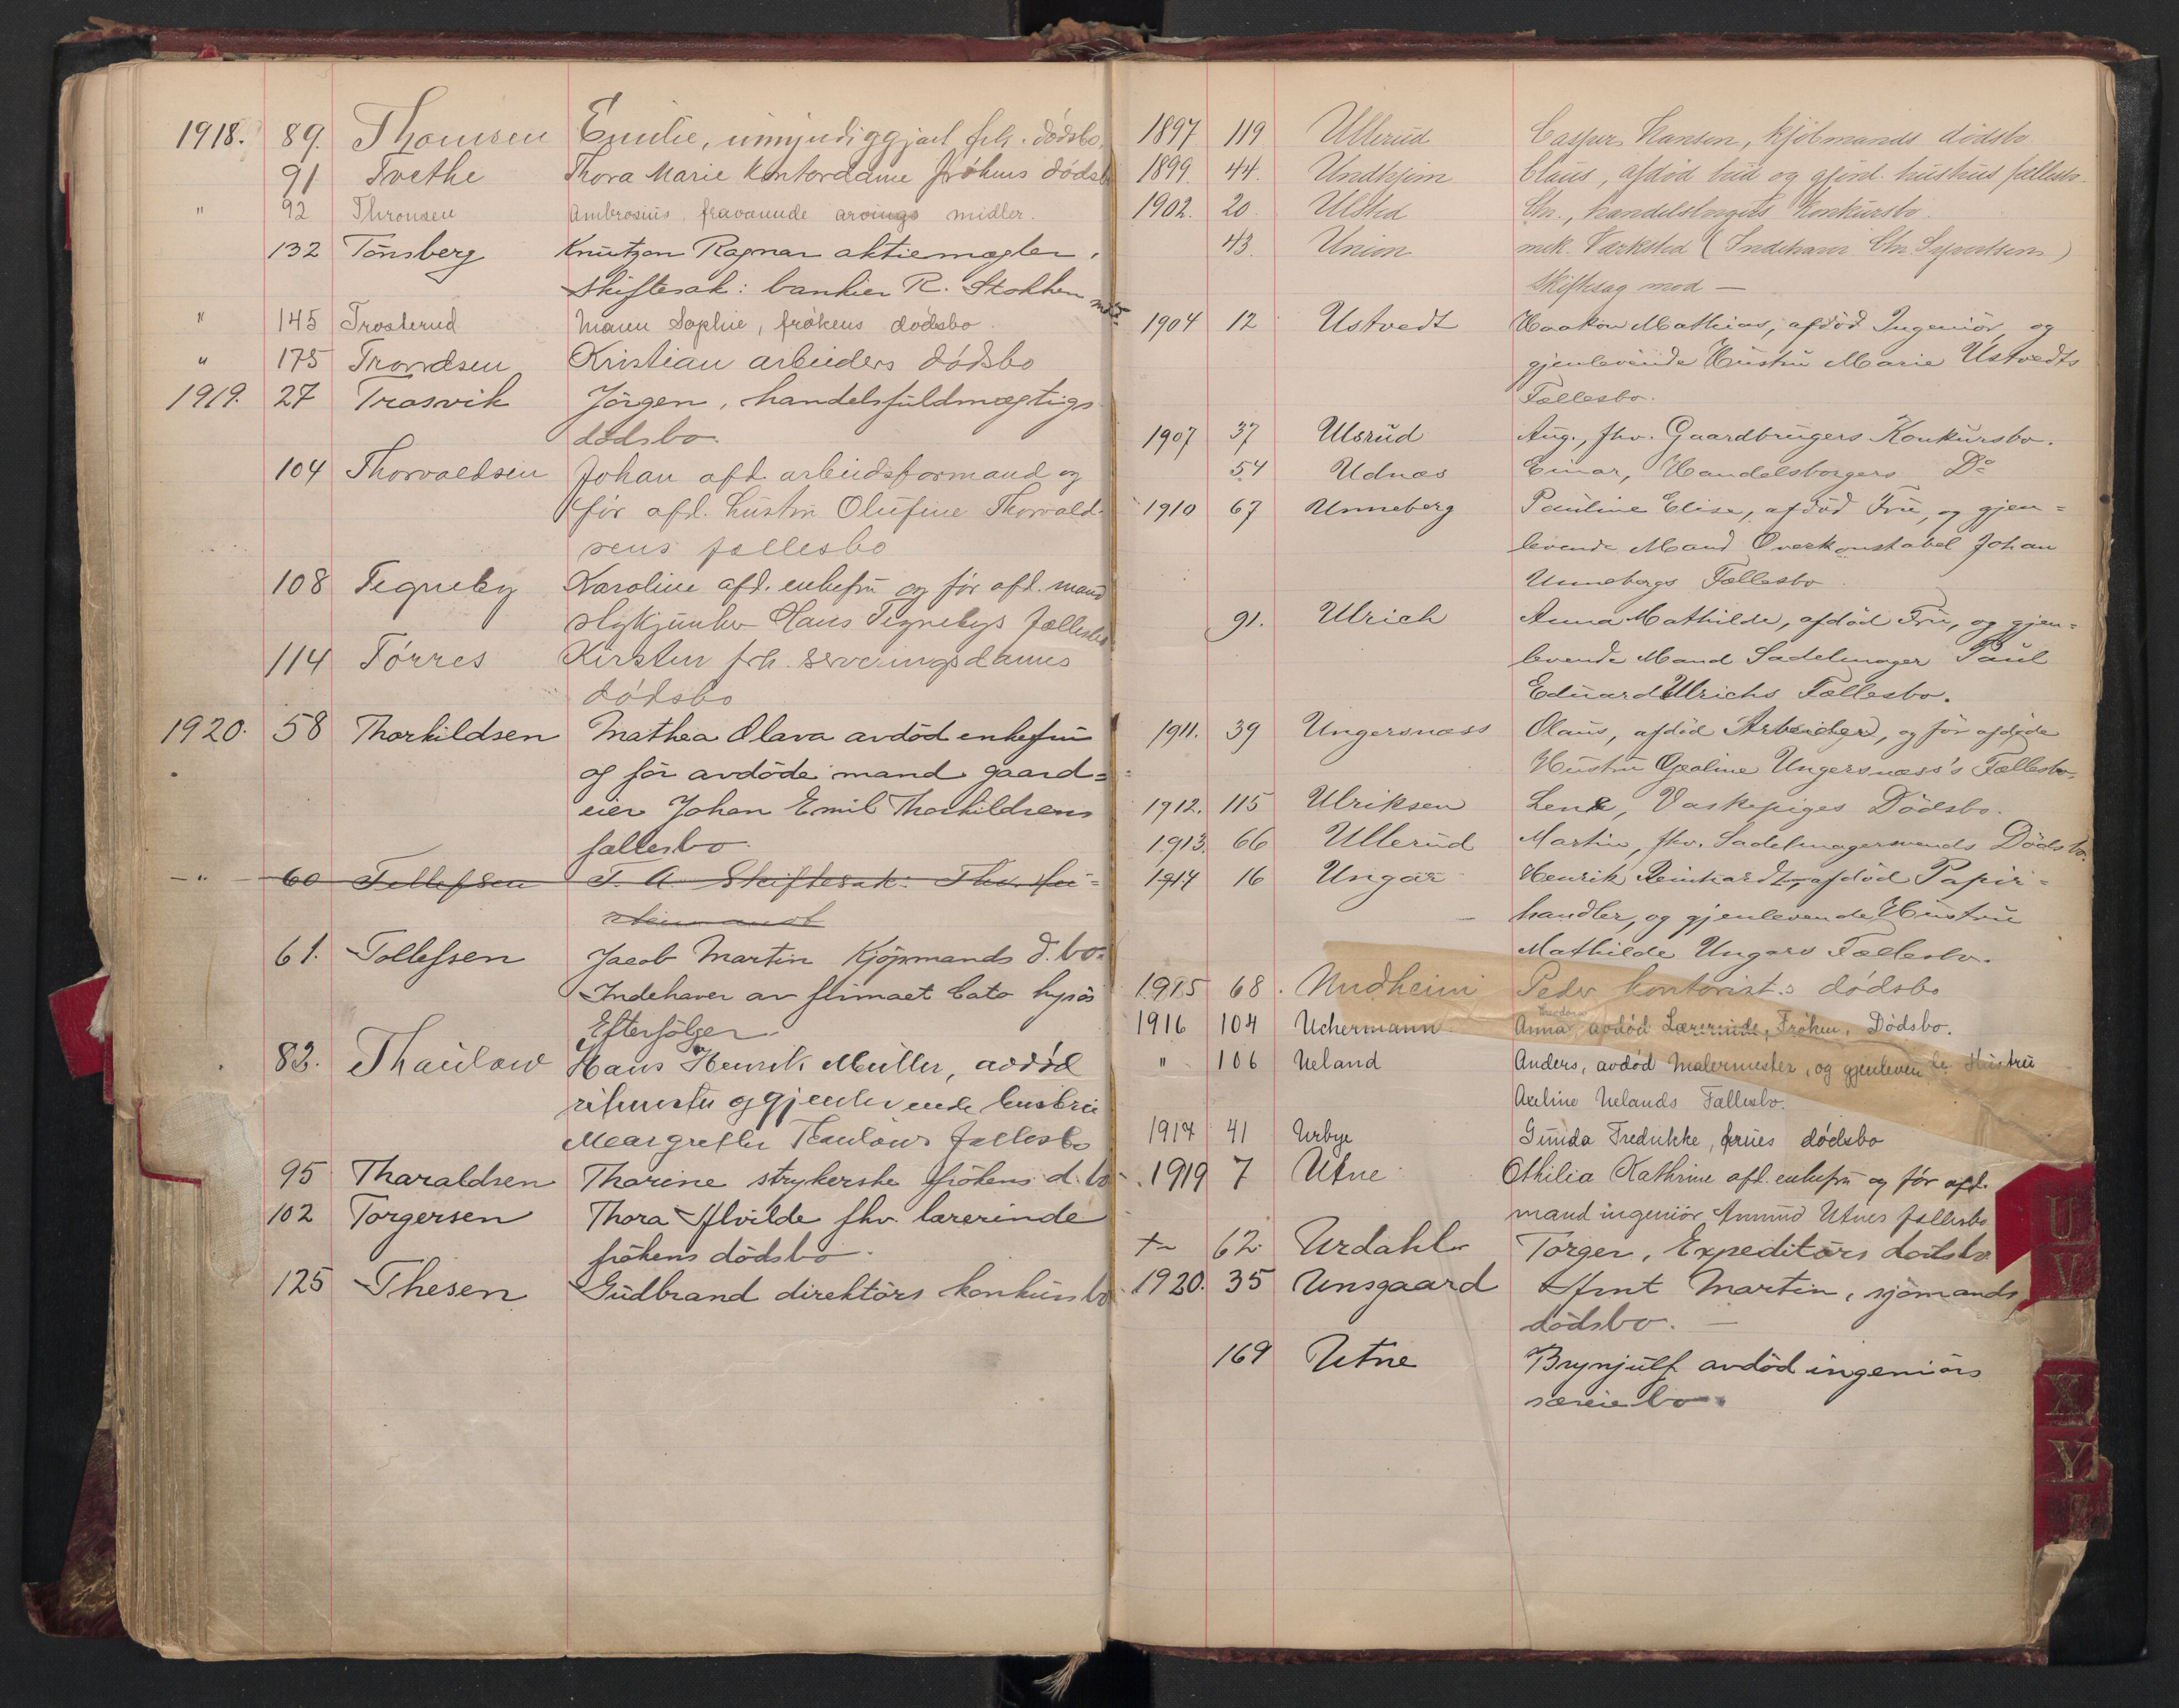 1918. 89. Thomsen Emilie, umyndiggjort frk. dödsbo.
91 Tvethe Thora Marie Kontordame frökens dödsbo
" 92 Thronsen Ambrosius, fraværende arvings midler.
132 Tönsberg Knutzon Ragnar aktiemægler,
Skiftesak: bankier R. Stokken mot
" 145 Trosterud Maren Sophie, frökens dödsbo.
" 175 Trondsen Kristian arbeiders dödsbo
1919. 27 Trasvik Jörgen, handelsfuldmægtigs
dödsbo.
104 Thorvaldsen Johan afd. arbeidsformand og
för afd. hustru Olufine Thorvald-
sens fællesbo
108 Tegneby Karoline afd. enkefru og för afd. mand
Hans Tegnebys fællesbo
114 Törres Kirsten frk. serveringsdames
dödsbo
1920. 58 Thorkildsen Mathea Olava avdöd enkefru
og för avdöde mand gaard=
eier Johan Emil Thorkildsens
fællesbo.
—"— 60 Tollefsen T. A. Skiftesak:
61. Tollefsen Jacob Martin Kjöpmands d.bo.
Indehaver av firmaet Cato
Efterfölger
82. Thaulow Hans Henrik Müller, avdöd
ritmester og gjenlevende hustru
Margrethe Thaulows fællesbo
95 Tharaldsen Tharine strykerske frökens d.bo
102 Torgersen Thora Alvilde fhv. lærerinde
frökens dödsbo.
125 Thesen Gudbrand direktörs konkursbo
1897 119 Ullerud Casper Hansen, Kjöbmands dödsbo.
1899. 44. Undhjem Claus, afdöd bud og gjenl. hustrus fællesbo.
1902. 20. Ulsted Chr., handelsborgers Konkursbo.
43. Union mek. Værksted (Indehaver Chr. Syvertsen)
Skiftesag mod —
1904 12 Ustvedt Haakon Mathias, afdöd Ingeniör, og
gjenlevende Hustru Marie Ustvedts
Fællesbo.
1907 37 Ulsrud Aug., fhv. Gaardbrugers Konkursbo.
54 Udnæs Einar, Handelsborgers Do
1910 67 Unneberg Pauline Elise, afdöd Fru, og gjen=
levende Mand Overkonstabel Johan
Unnebergs Fællesbo.
91. Ulrich Anna Mathilde, afdöd Fru, og gjen=
levende Mand Sadelmager Paul
Eduard Ulrichs Fællesbo.
1911. 39 Ungersnæss Olaus, afdöd Arbeider, og för afdöde
Hustru Ungersnæss's Fællesbo.
1912. 115 Ulriksen Lena, Vaskepiges Dödsbo.
1913. 66 Ullerud Martin, fhv. Sadelmagersvends Dödsbo.
1914 16 Ungar Henrik Reinhardt, afdöd Papir=
handler, og gjenlevende Hustru
Mathilde Ungars Fællesbo.
1915 68. Undheim Peder kontorist.s dödsbo
1916 104 Uchermann Anna Theodora, avdöd Lærerinde, Fröken, Dödsbo.
" 106 Ueland Anders, avdöd Malermester, og gjenlevende Hustru
Axeline Uelands Fællesbo.
1917 41 Urbye Gunda Fredrikke, frues dödsbo
1919 7 Utne Othilia Kathrine afd. enkefru og för afd.
mand ingeniör Ammund Utnes fællesbo
62. Urdahl Torger, Expeditörs dödsbo
1920. 35 Unsgaard Arnt Martin, sjömands
dödsbo. —
169 Utne Brynjulf avdöd ingeniörs
særeiebo.
U
V
X
Y